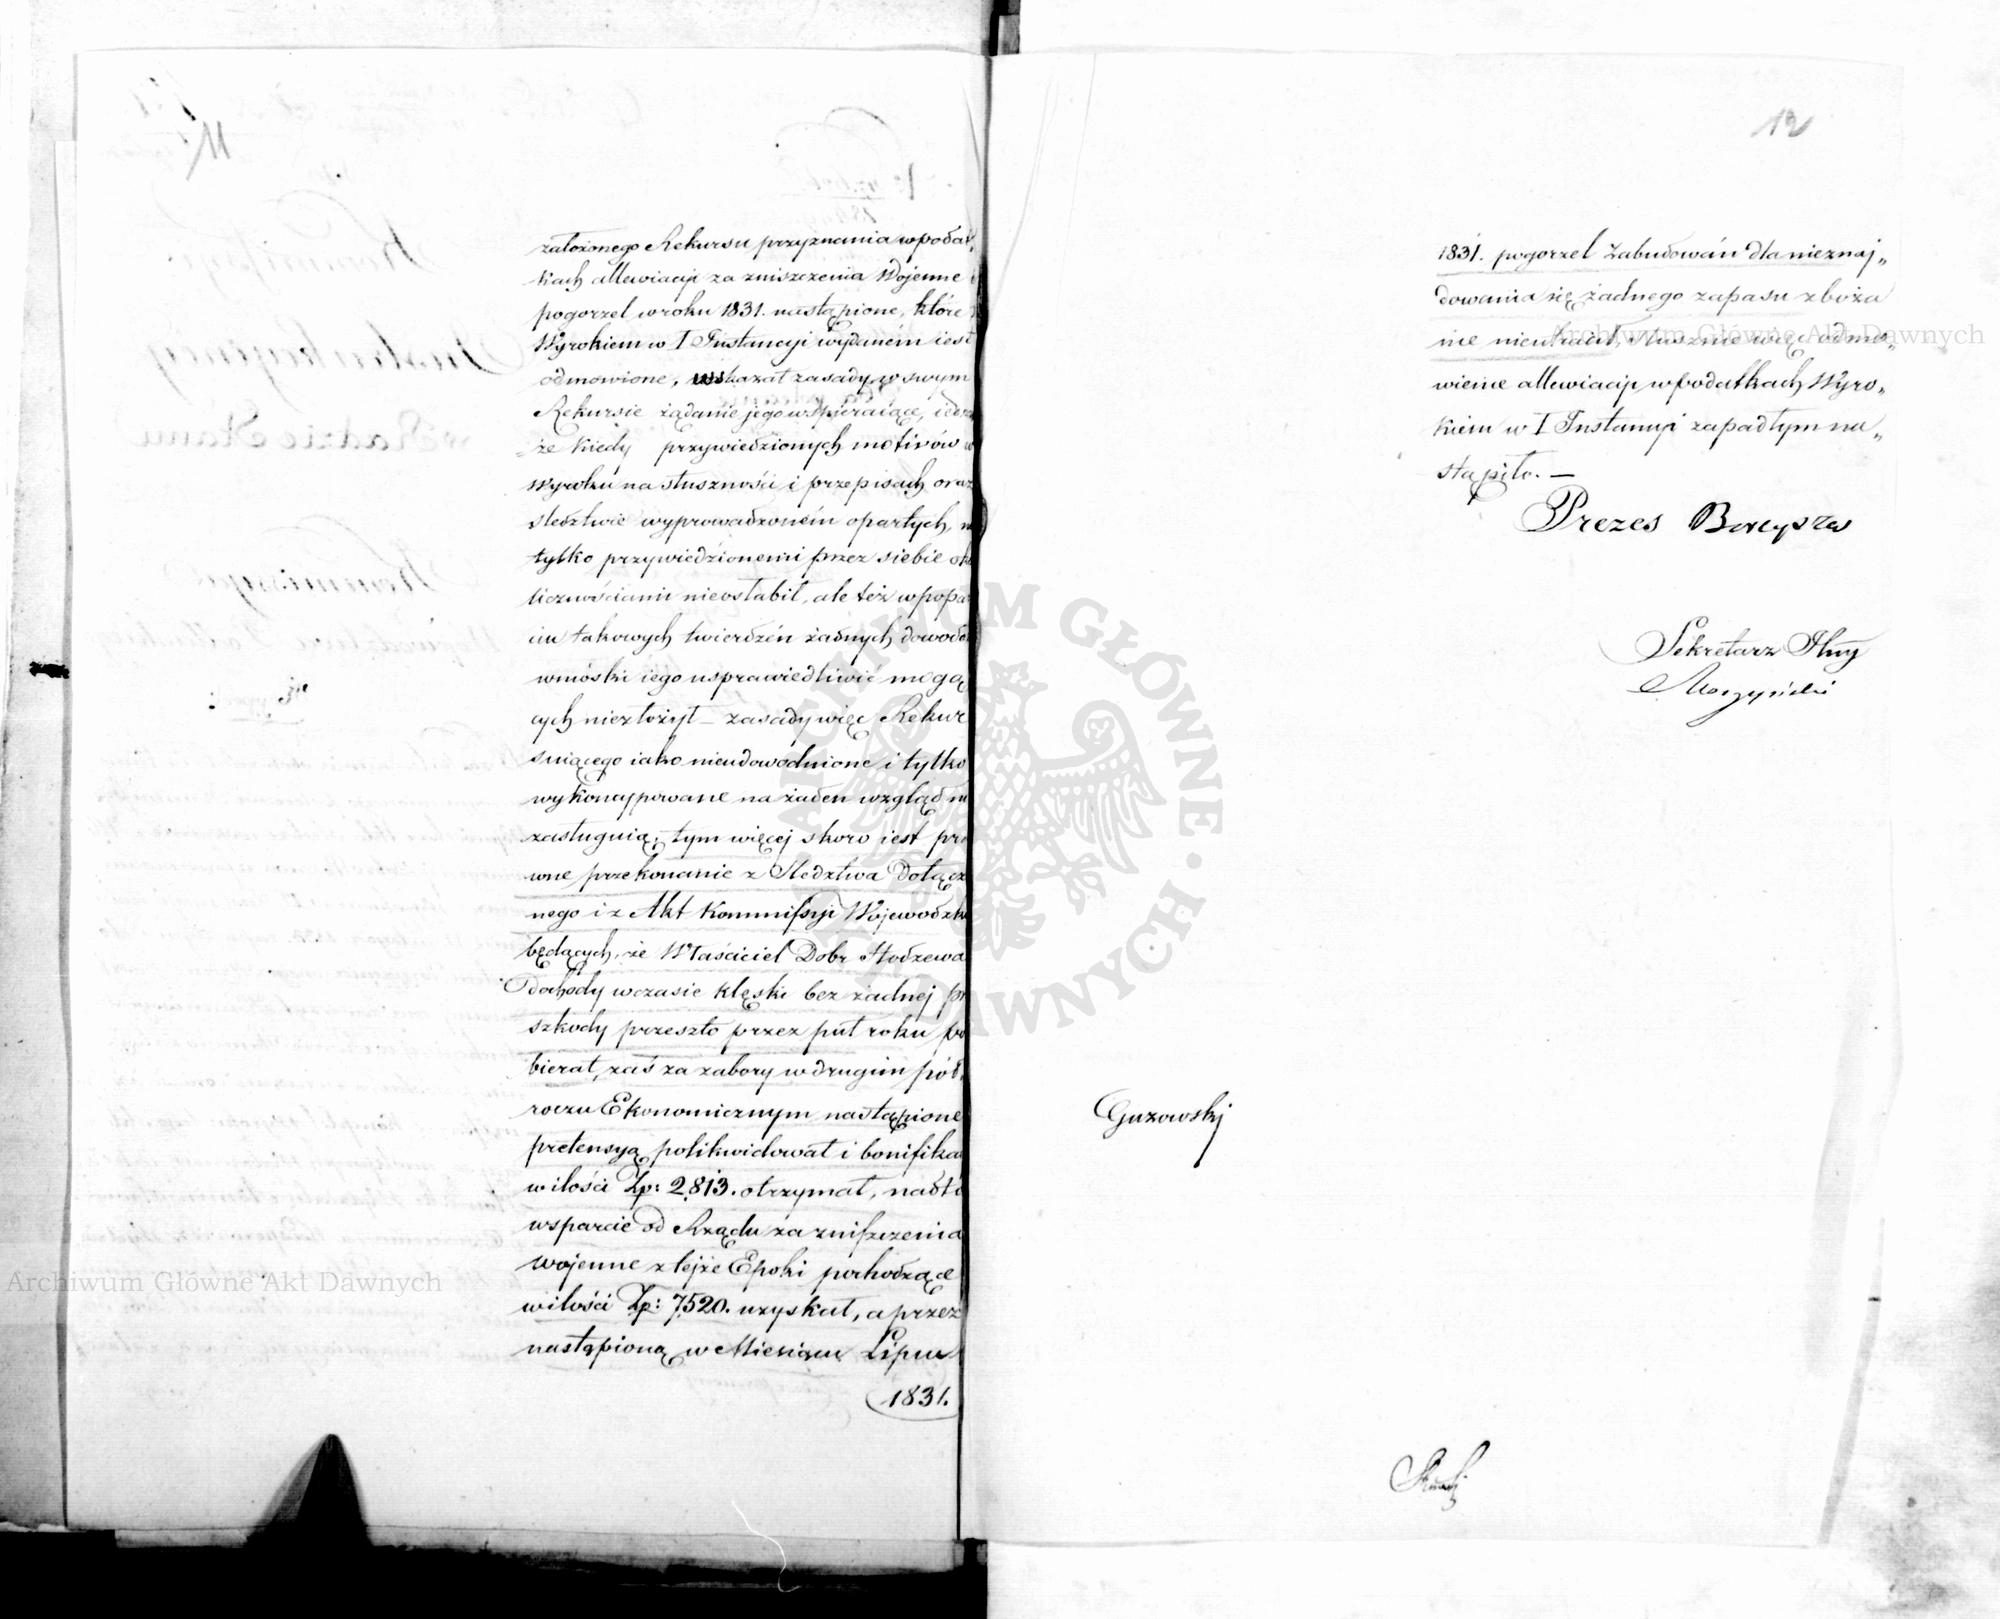 założonego Rekursu przyznania w podat„
kach allewiacyi za zniszczenia Wojenne i
pogorzel w roku 1831. nastąpione, które
Wyrokiem w I Instancyi wydaném iest
odmówione, wskazał zasady w swym
Rekursie żądanie jego wspieraiące,
że kiedy przywiedzionych motivów w
Wyroku na słuszności i przepisach oraz
śledztwie wyprowadzoném opartych,
tylko przywiedzionemi przez siebie
licznościami nieosłabił, ale też w popar
ciu takowych twierdzeń żadnych dowodó
wnióski iego usprawiedliwić mogą
cych niezłożył – zasady więc Rekur
suiącego iako nieudowodnione i tylko
wykoncypowane na żaden wzgląd ni
zasługuią; tym więcej skoro iest
wne przekonanie z Śledztwa dołącz
nego i z Akt Kommissyi Wojewodzki
będących, że Właściciel Dobr Stodzewa
Dochody w czasie klęski bez żadnej
szkody przeszło przez pół roku po
bierał, zaś za zabory w drugim pół„
roczu Ekonomicznym nastąpione
pretensyą polikwidował i bonifika
w ilości Zp: 2,813. otrzymał, nadto
wsparcie od Rządu za zniszczenia
wojenne z tejże Epoki pochodzące
w ilości Zp: 7,520. uzyskał, a przez
nastąpioną w Miesiącu Lipcu
1831.
12
1831. pogorzel Zabudowań dla nieznaj„
dowania się żadnego zapasu zboża
nic nieutracił, słusznie więc odmó„
wienie allewiacyi w podatkach Wyro„
kiem w I Instancyi zapadłym na„
stąpiło. —
Prezes
Sekretarz
Guzowski
Archiwum Główne Akt Dawnych
Archiwum Główne Akt Dawnych
ARCHIWUM GŁÓWNE · AKT DAWNYCH ·